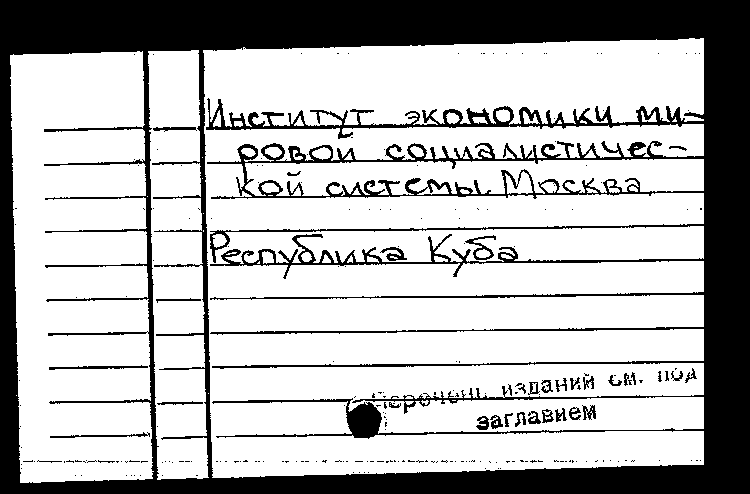 Институт экономики ми-
ровой социалистичес-
кой системы. Москва.
Республика Куба
Перечень изданий см. под
заглавием